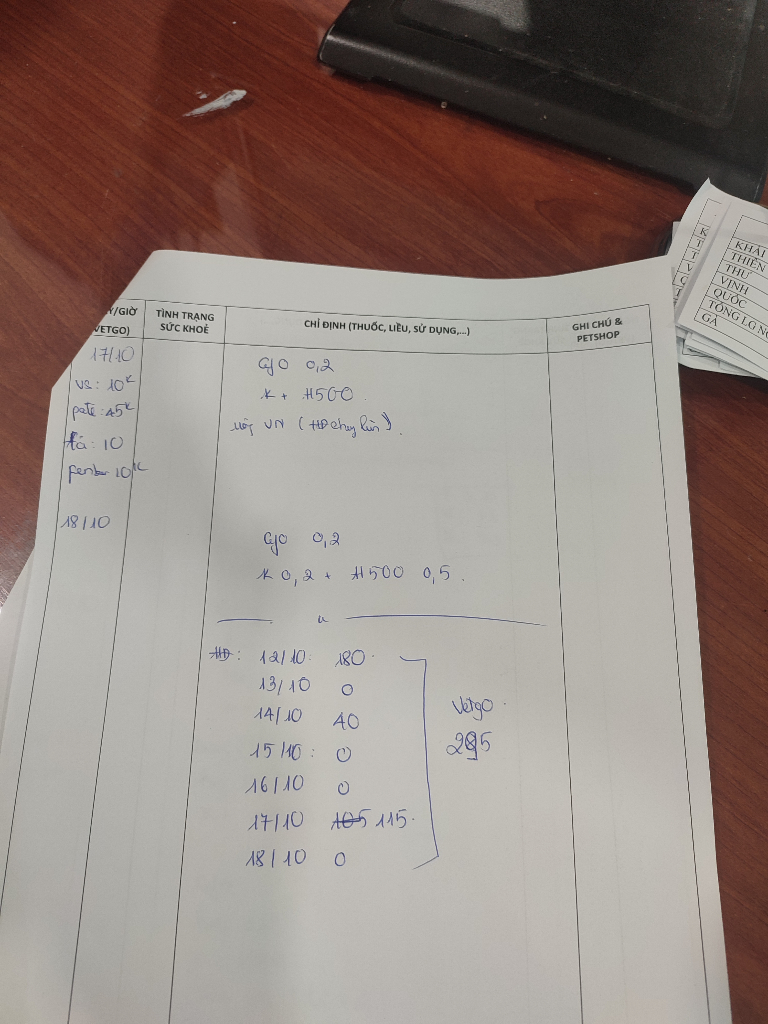 Y/GIỜ
VETGO)
TÌNH TRẠNG
SỨC KHOẺ
CHỈ ĐỊNH (THUỐC, LIỀU, SỬ DỤNG,...)
GHI CHÚ &
PETSHOP
17/10
vs: 10k
pate: 45k
tả: 10
10k
0,2
K + H500
VN (HĐ
18/10
0,2
K 0,2 + H500 0,5.
HĐ: 12/10: 180
13/10 0
14/10 40
15/10: 0
16/10 0
17/10 105 115
18/10 0
Vetgo
295
KHẢI
THIÊN
THƯ
VỊNH
QUỐC
TỔNG LG
GÀ